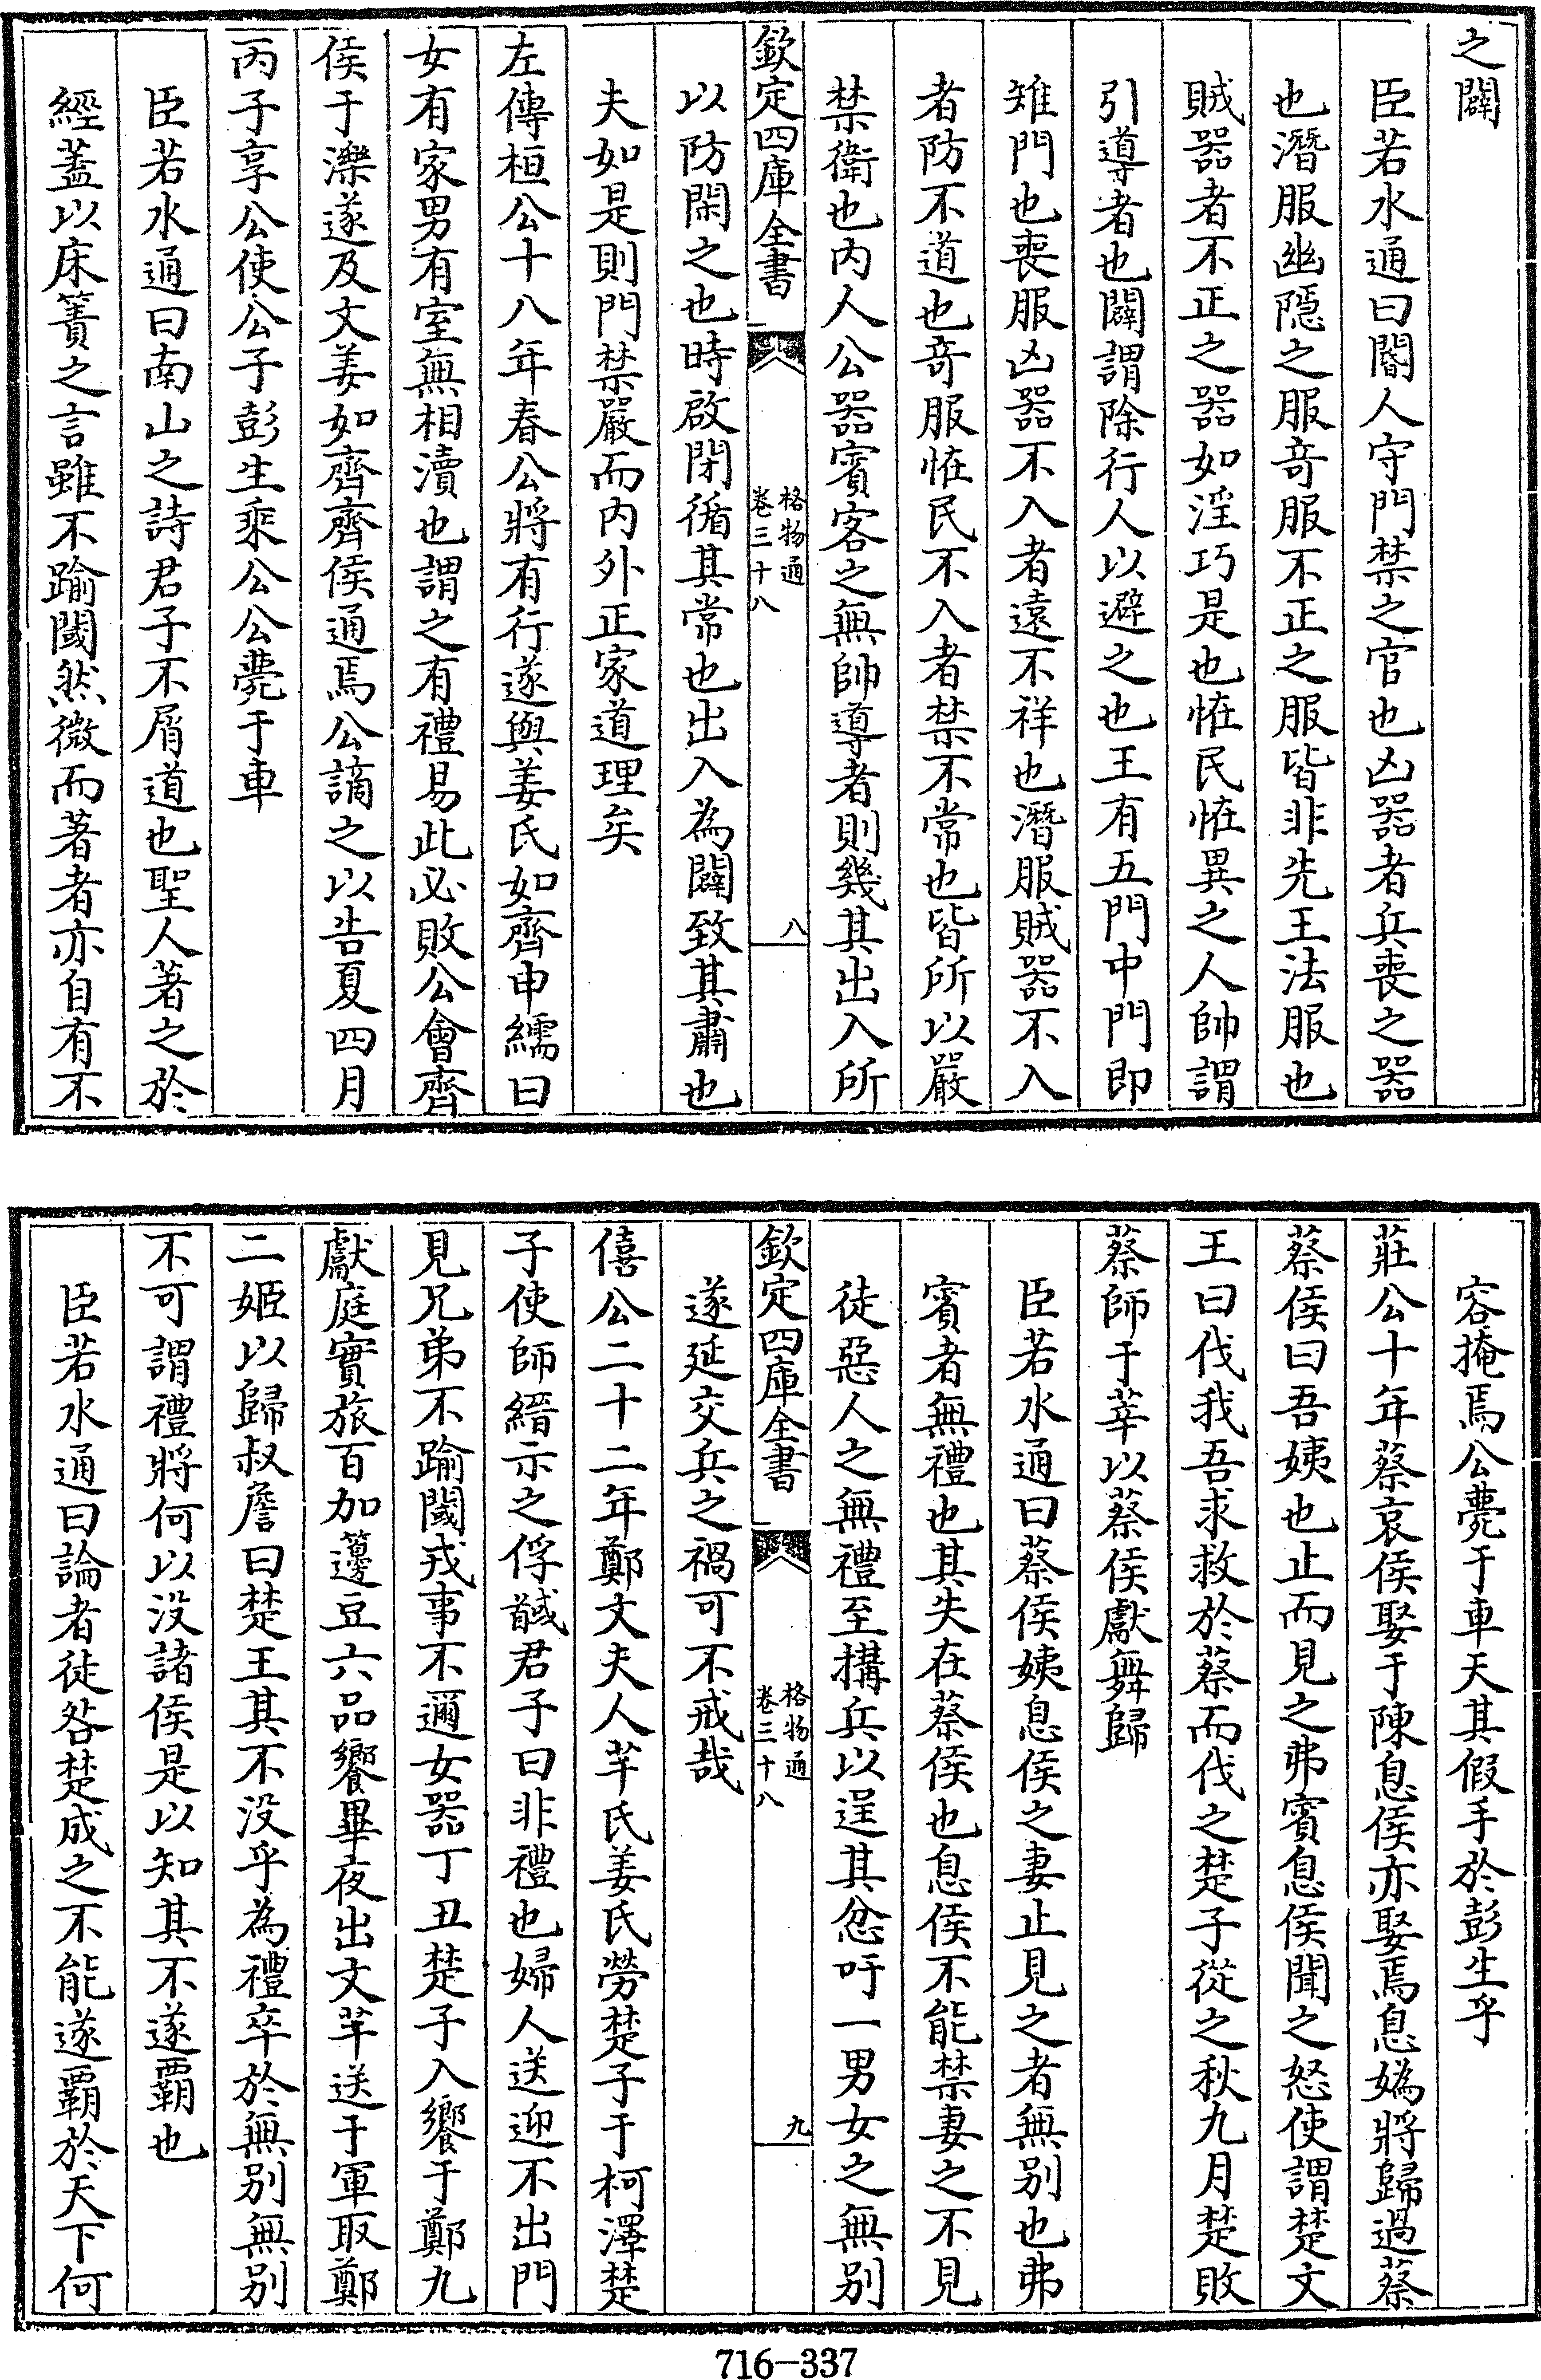 之闢
臣若水通曰閽人守門禁之官也凶器者兵喪之器
也潛服幽隱之服竒服不正之服皆非先王法服也
賊器者不正之器如淫巧是也恠民恠異之人帥謂
引導者也闢謂除行人以避之也王有五門中門即
雉門也喪服凶器不入者遠不祥也潛服賊器不入
者防不道也竒服恠民不入者禁不常也皆所以嚴
禁衛也内人公器賓客之無帥導者則幾其出入所
欽定四庫全書
格物通
卷三十八
八
以防閑之也時啟閉循其常也出入為闢致其肅也
夫如是則門禁嚴而内外正家道理矣
左傳桓公十八年春公將有行遂與姜氏如齊申繻曰
女有家男有室無相瀆也謂之有禮易此必敗公會齊
侯于濼遂及文姜如齊齊侯通焉公謫之以告夏四月
丙子享公使公子彭生乘公公薨于車
臣若水通曰南山之詩君子不屑道也聖人著之於
經葢以床簀之言雖不踰閾然微而著者亦自有不
容掩焉公薨于車天其假手於彭生乎
莊公十年蔡哀侯娶于陳息侯亦娶焉息媯將歸過蔡
蔡侯曰吾姨也止而見之弗賓息侯聞之怒使謂楚文
王曰伐我吾求救於蔡而伐之楚子從之秋九月楚敗
蔡師于莘以蔡侯獻舞歸
臣若水通曰蔡侯姨息侯之妻止見之者無别也弗
賓者無禮也其失在蔡侯也息侯不能禁妻之不見
徒惡人之無禮至搆兵以逞其忿吁一男女之無别
欽定四庫全書
格物通
卷三十八
九
遂延交兵之禍可不戒哉
僖公二十二年鄭文夫人芊氏姜氏勞楚子于柯澤楚
子使師縉示之俘馘君子曰非禮也婦人送迎不出門
見兄弟不踰閾戎事不邇女器丁丑楚子入饗于鄭九
獻庭實旅百加籩豆六品饗畢夜出文芊送于軍取鄭
二姬以歸叔詹曰楚王其不没乎為禮卒於無别無别
不可謂禮將何以没諸侯是以知其不遂覇也
臣若水通曰論者徒咎楚成之不能遂覇於天下何
716-337